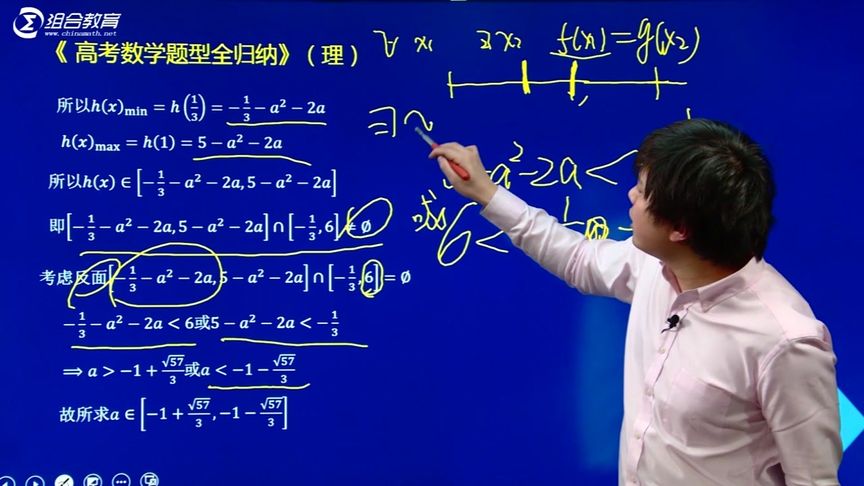 组合教育
www.chinamath.net
《 高考数学题型全归纳》（理）
∀ x₁ ∃ x₂ f(x₁)=g(x₂)
所以h(x)min = h(1/3) = −1/3 − a² − 2a
h(x)max = h(1) = 5 − a² − 2a
所以h(x) ∈ [−1/3 − a² − 2a, 5 − a² − 2a]
即[−1/3 − a² − 2a, 5 − a² − 2a] ∩ [−1/3, 6] ≠ ∅
考虑反面[−1/3 − a² − 2a, 5 − a² − 2a] ∩ [−1/3, 6] = ∅
−1/3 − a² − 2a < 6或5 − a² − 2a < −1/3
⟹ a > −1 + √57/3 或a < −1 − √57/3
故所求a ∈ [−1 + √57/3, −1 − √57/3]
∃
a²−2a<
或 6<